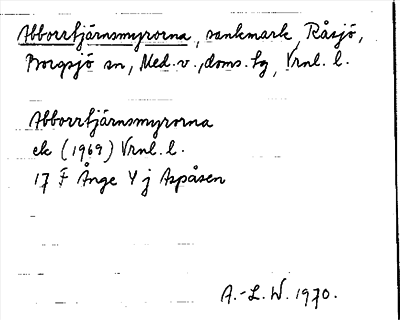 Abborrtjärnsmyrorna, sankmark, Råsjö,
Borgsjö sn, Med. v., doms. tg, Vrnl. l.
Abborrtjärnsmyrorna
ek (1969) Vrnl. l.
17 F Ånge 4 j Aspåsen
A.-L. W. 1970.